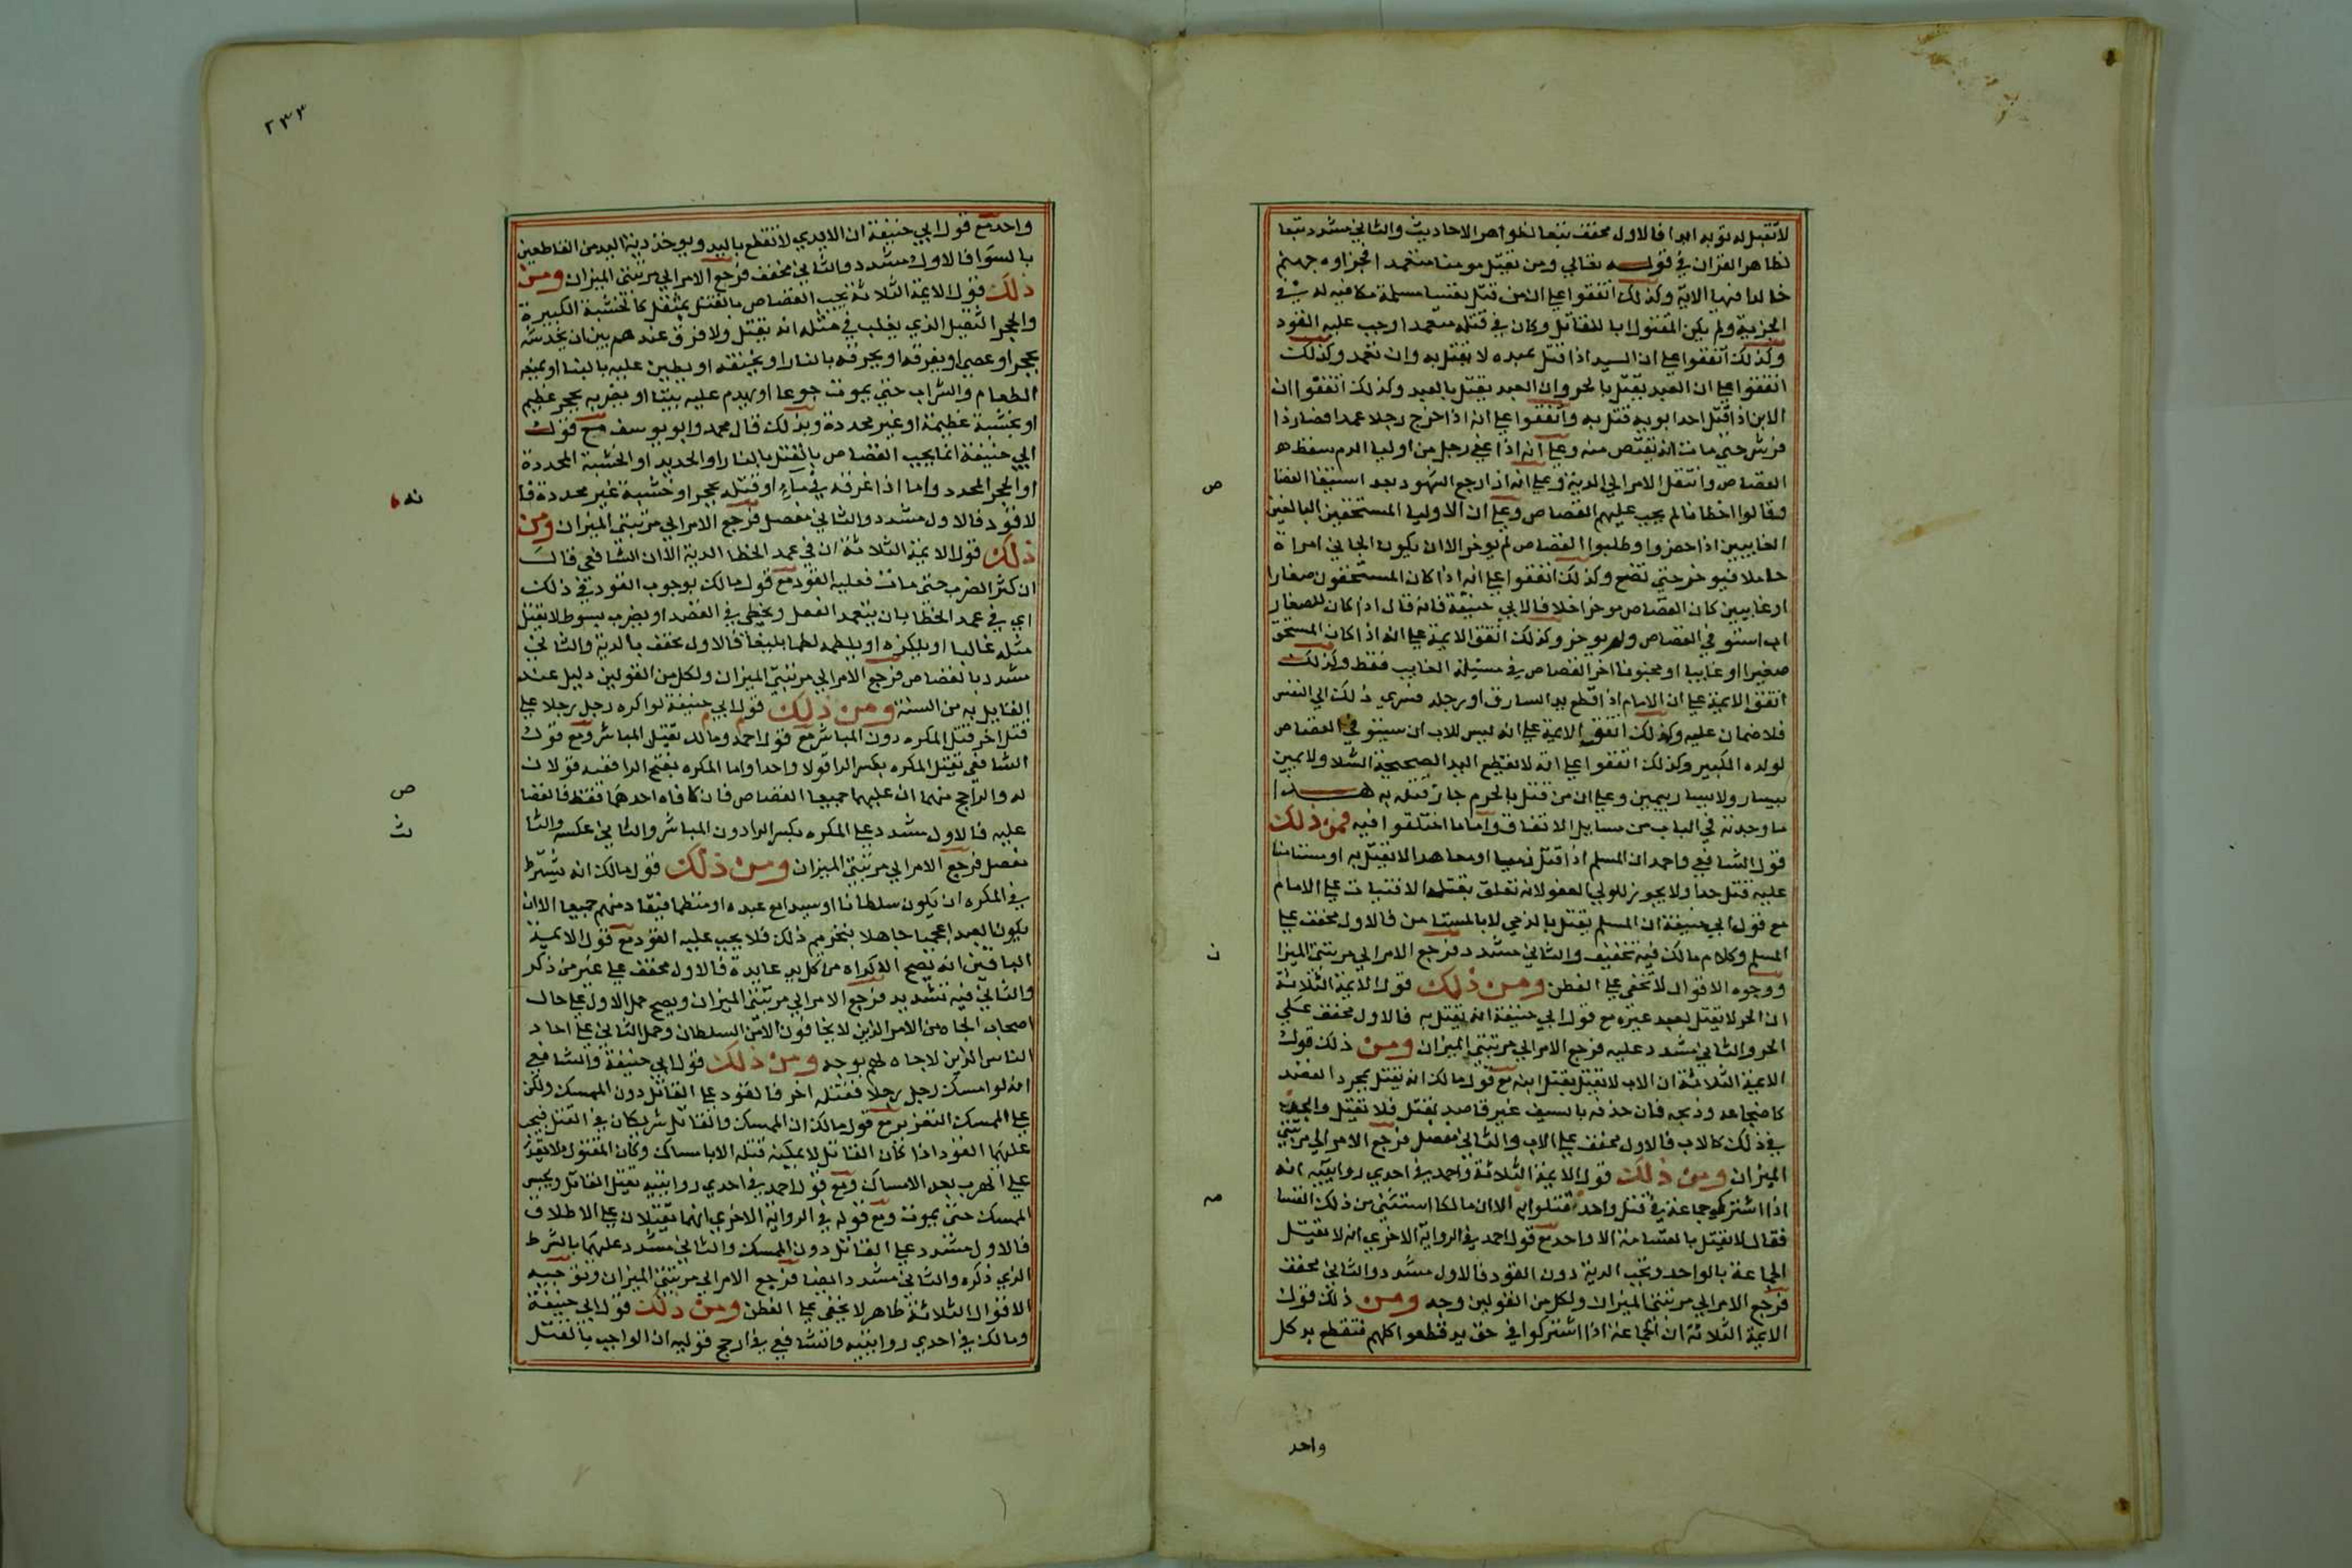 لا تقبل له توبة ابدا فالاول مخفف تبعا لظواهر الاحاديث والثاني مشدد تبعا
لظاهر القران في قوله تعالي ومن يقتل مومنا متعمدا فجزاوه جهنم
خالدا فيها الاية وكذلك اتفقوا علي ان من قتل نفسا مسلمة مكافية له في
الحرية ولم يكن المقتول ابا للقاتل وكان في قتله متعمدا وجب عليه القود
وكذلك اتفقوا علي ان السيد اذا قتل عبده لا يقتل به وان تعمد وكذلك
اتفقوا علي ان العبد يقتل بالحر وان العبد يقتل بالعبد وكذلك اتفقوا ان
الابن اذا قتل احد ابويه قتل به واتفقوا علي انه اذا جرح رجلا عمدا فصار ذا
فرش حتي مات انه يقتص منه وعلي انه اذا عفي رجل من اوليا الدم سقط
القصاص وانتقل الامر الي الدية وعلي انه اذا رجع الشهود بعد استيفا القصا
وقالوا اخطانا لم يجب عليهم القصاص وعلي ان الاوليا المستحقين البالغين
الغايبين اذا حضروا وطلبوا القصاص لم يوخر الا ان يكون الجاني امراة
حاملا فيوخر حتي تضع وكذلك اتفقوا علي انه اذا كان المستحقون صغارا
او غايبين كان القصاص موخرا خلافا لابي حنيفة فانه قال اذا كان للصغار
اب استوفي القصاص ولم يوخر وكذلك اتفق الايمة علي انه اذا كان المستحق
صغيرا او غايبا او مجنونا اخر القصاص في مسيلة الغايب فقط وكذلك
اتفق الايمة علي ان الامام اذا قطع يد السارق او رجله فسري ذلك الي النفس
فلا ضمان عليه وكذلك اتفق الايمة علي انه ليس للاب ان يستوفي القصاص
لولده الكبير وكذلك اتفقوا علي انه لا تقطع اليد الصحيحة بالشلا ولا يمين
بيسار ولا يسار بيمين وعلي ان من قتل بالحرم جاز قتله به هذا
ما وجدته في الباب من مسايل الاتفاق واما ما اختلفوا فيه فمن ذلك
قول الشافعي واحمد ان المسلم اذا قتل ذميا او معاهدا لا يقتل به او مستامنا
عليه قتل حدا ولا يجوز للولي العفو لانه تعلق بقتله الافتيات علي الامام
مع قول ابي حنيفة ان المسلم يقتل بالذمي لا بالمستامن فالاول مخفف علي
المسلم وكلام مالك فيه تخفيف والثاني مشدد فرجع الامر الي مرتبتي الميزا
ووجوه الاقوال لا تخفي علي الفطن ومن ذلك قول الايمة الثلاثة
ان الحر لا يقتل بعبد غيره مع قول ابي حنيفة انه يقتل به فالاول مخفف علي
الحر والثاني مشدد عليه فرجع الامر الي مرتبتي الميزان ومن ذلك قول
الايمة الثلاثة ان الاب لا يقتل بقتل ابنه مع قول مالك انه يقتل بمجرد القصد
كاضجاعه وذبحه فان حذفه بالسيف غير قاصد لقتل فلا يقتل والجد
في ذلك كالاب فالاول مخفف علي الاب والثاني مفصل فرجع الامر الي مرتبتي
الميزان ومن ذلك قول الايمة الثلاثة واحمد في احدي روايتيه انه
اذا اشترك جماعة في قتل واحد قتلوا به الا ان مالكا استثني من ذلك القسا
فقال لا يقتل بالقسامة الا واحد مع قول احمد في الرواية الاخري انه لا تقتل
الجماعة بالواحد وتجب الدية دون القود فالاول مشدد والثاني مخفف
فرجع الامر الي مرتبتي الميزان ولكل من القولين وجه ومن ذلك قول
الايمة الثلاثة ان الجماعة اذا اشتركوا في حق يد قطعوا كلهم فتقطع يد كل
واحد
ص
ن
صه
٢٣٣
واحد مع قول ابي حنيفة ان الايدي لا تقطع باليد ويوخذ دية اليد من القاطعين
بالسوا فالاول مشدد والثاني مخفف فرجع الامر الي مرتبتي الميزان ومن
ذلك قول الايمة الثلاثة يجب القصاص بالقتل بمثقل كالخشبة الكبيرة
والحجر الثقيل الذي يغلب في مثله انه يقتل ولا فرق عندهم بين ان يخدشه
بحجر او عصي او يغرقه او يحرقه بالنار او يخنقه او يطين عليه بالبنا او يمنعه
الطعام والشراب حتي يموت جوعا او يهدم عليه بيتا او يضربه بحجر عظيم
او بخشبة عظيمة او غير محددة وبذلك قال محمد وابو يوسف مع قول
ابي حنيفة انما يجب القصاص بالقتل بالنار او الحديد او الخشبة المحددة
او الحجر المحدد واما اذا غرقه في ماء او قتله بحجر او خشبة غير محددة فا
لا قود فالاول مشدد والثاني مفصل فرجع الامر الي مرتبتي الميزان ومن
ذلك قول الايمة الثلاثة ان في عمد الخطا الدية الا ان الشافعي قال
ان كثر الضرب حتي مات فعليه القود مع قول مالك بوجوب القود في ذلك
اي في عمد الخطا بان يتعمد الفعل ويخطي في القصد او يضرب بسوط لا يقتل
مثله غالبا او يلكزه او يلطمه لطما بليغا فالاول مخفف بالدية والثاني
مشدد بالقصاص فرجع الامر الي مرتبتي الميزان ولكل من القولين دليل عند
القايل به من السنة ومن ذلك قول ابي حنيفة لو اكره رجل رجلا علي
قتل اخر قتل المكره دون المباشر مع قول احمد ومالك يقتل المباشر ومع قول
الشافعي يقتل المكره بكسر الرا قولا واحدا واما المكره بفتح الرا ففيه قولان
له والراجح منهما ان عليهما جميعا القصاص فان كافاه احدهما فقط فالقصا
عليه فالاول مشدد علي المكره بكسر الرا دون المباشر والثاني عكسه والثا
مفصل فرجع الامر الي مرتبتي الميزان ومن ذلك قول مالك انه يشترط
في المكره ان يكون سلطانا او سيدا مع عبده او متظلما فيقاد منهم جميعا الا ان
يكون العبد اعجميا جاهلا بتحريم ذلك فلا يجب عليه القود مع قول الايمة
الباقين انه يصح الاكراه من كل يد عادية فالاول مخفف علي غير من ذكر
والثاني فيه تشديد فرجع الامر الي مرتبتي الميزان ويصح حمل الاول علي حال
اصحاب الجاه من الامرا الذين لا يخافون الا من السلطان وحمل الثاني علي احاد
الناس الذين لا جاه لهم بوجه ومن ذلك قول ابي حنيفة والشافعي
انه لو امسك رجل رجلا فقتله اخر فالقود علي القاتل دون الممسك ولكن
علي الممسك التعزير مع قول مالك ان الممسك والقاتل شريكان في القتل فيجب
عليهما القود اذا كان القاتل لا يمكنه قتله الا بامساك وكان المقتول لا يقدر
علي الهرب بعد الامساك ومع قول احمد في احدي روايتيه يقتل القاتل ويحبس
الممسك حتي يموت ومع قوله في الرواية الاخري انهما يقتلان علي الاطلاق
فالاول مشدد علي القاتل دون الممسك والثاني مشدد عليهما بالشرط
الذي ذكره والثاني مشدد ايضا فرجع الامر الي مرتبتي الميزان وتوجيه
الاقوال الثلاثة ظاهر لا يخفي علي الفطن ومن ذلك قول ابي حنيفة
ومالك في احدي روايتيه والشافعي في ارجح قوليه ان الواجب بالقتل
ص
ث